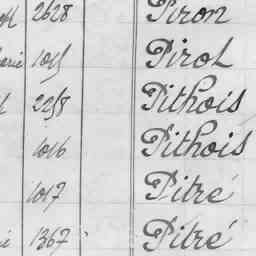 2628 Piron
1015 Pirot
2258 Pithois
1016 Pithois
1017 Pitré
1367 Pitré